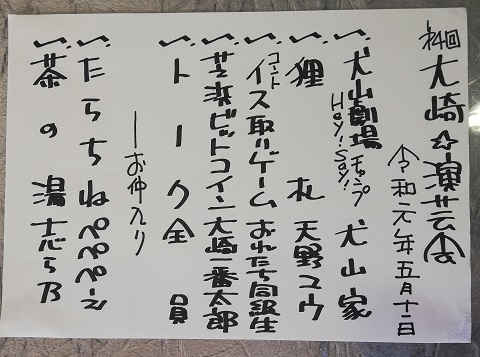 第4回 大崎☆演芸会
令和元年五月十二日
一、犬山劇場 Hey!Say!チャンプ 犬山家
一、狸札 天野ユウ
一、コント イス取りゲーム おれたち同級生
一、芝浜ビットコイン 大崎一番太郎
一、トーク 全員
―お仲入り
一、たらちね ぺぺぺえ
一、茶の湯 志ら乃